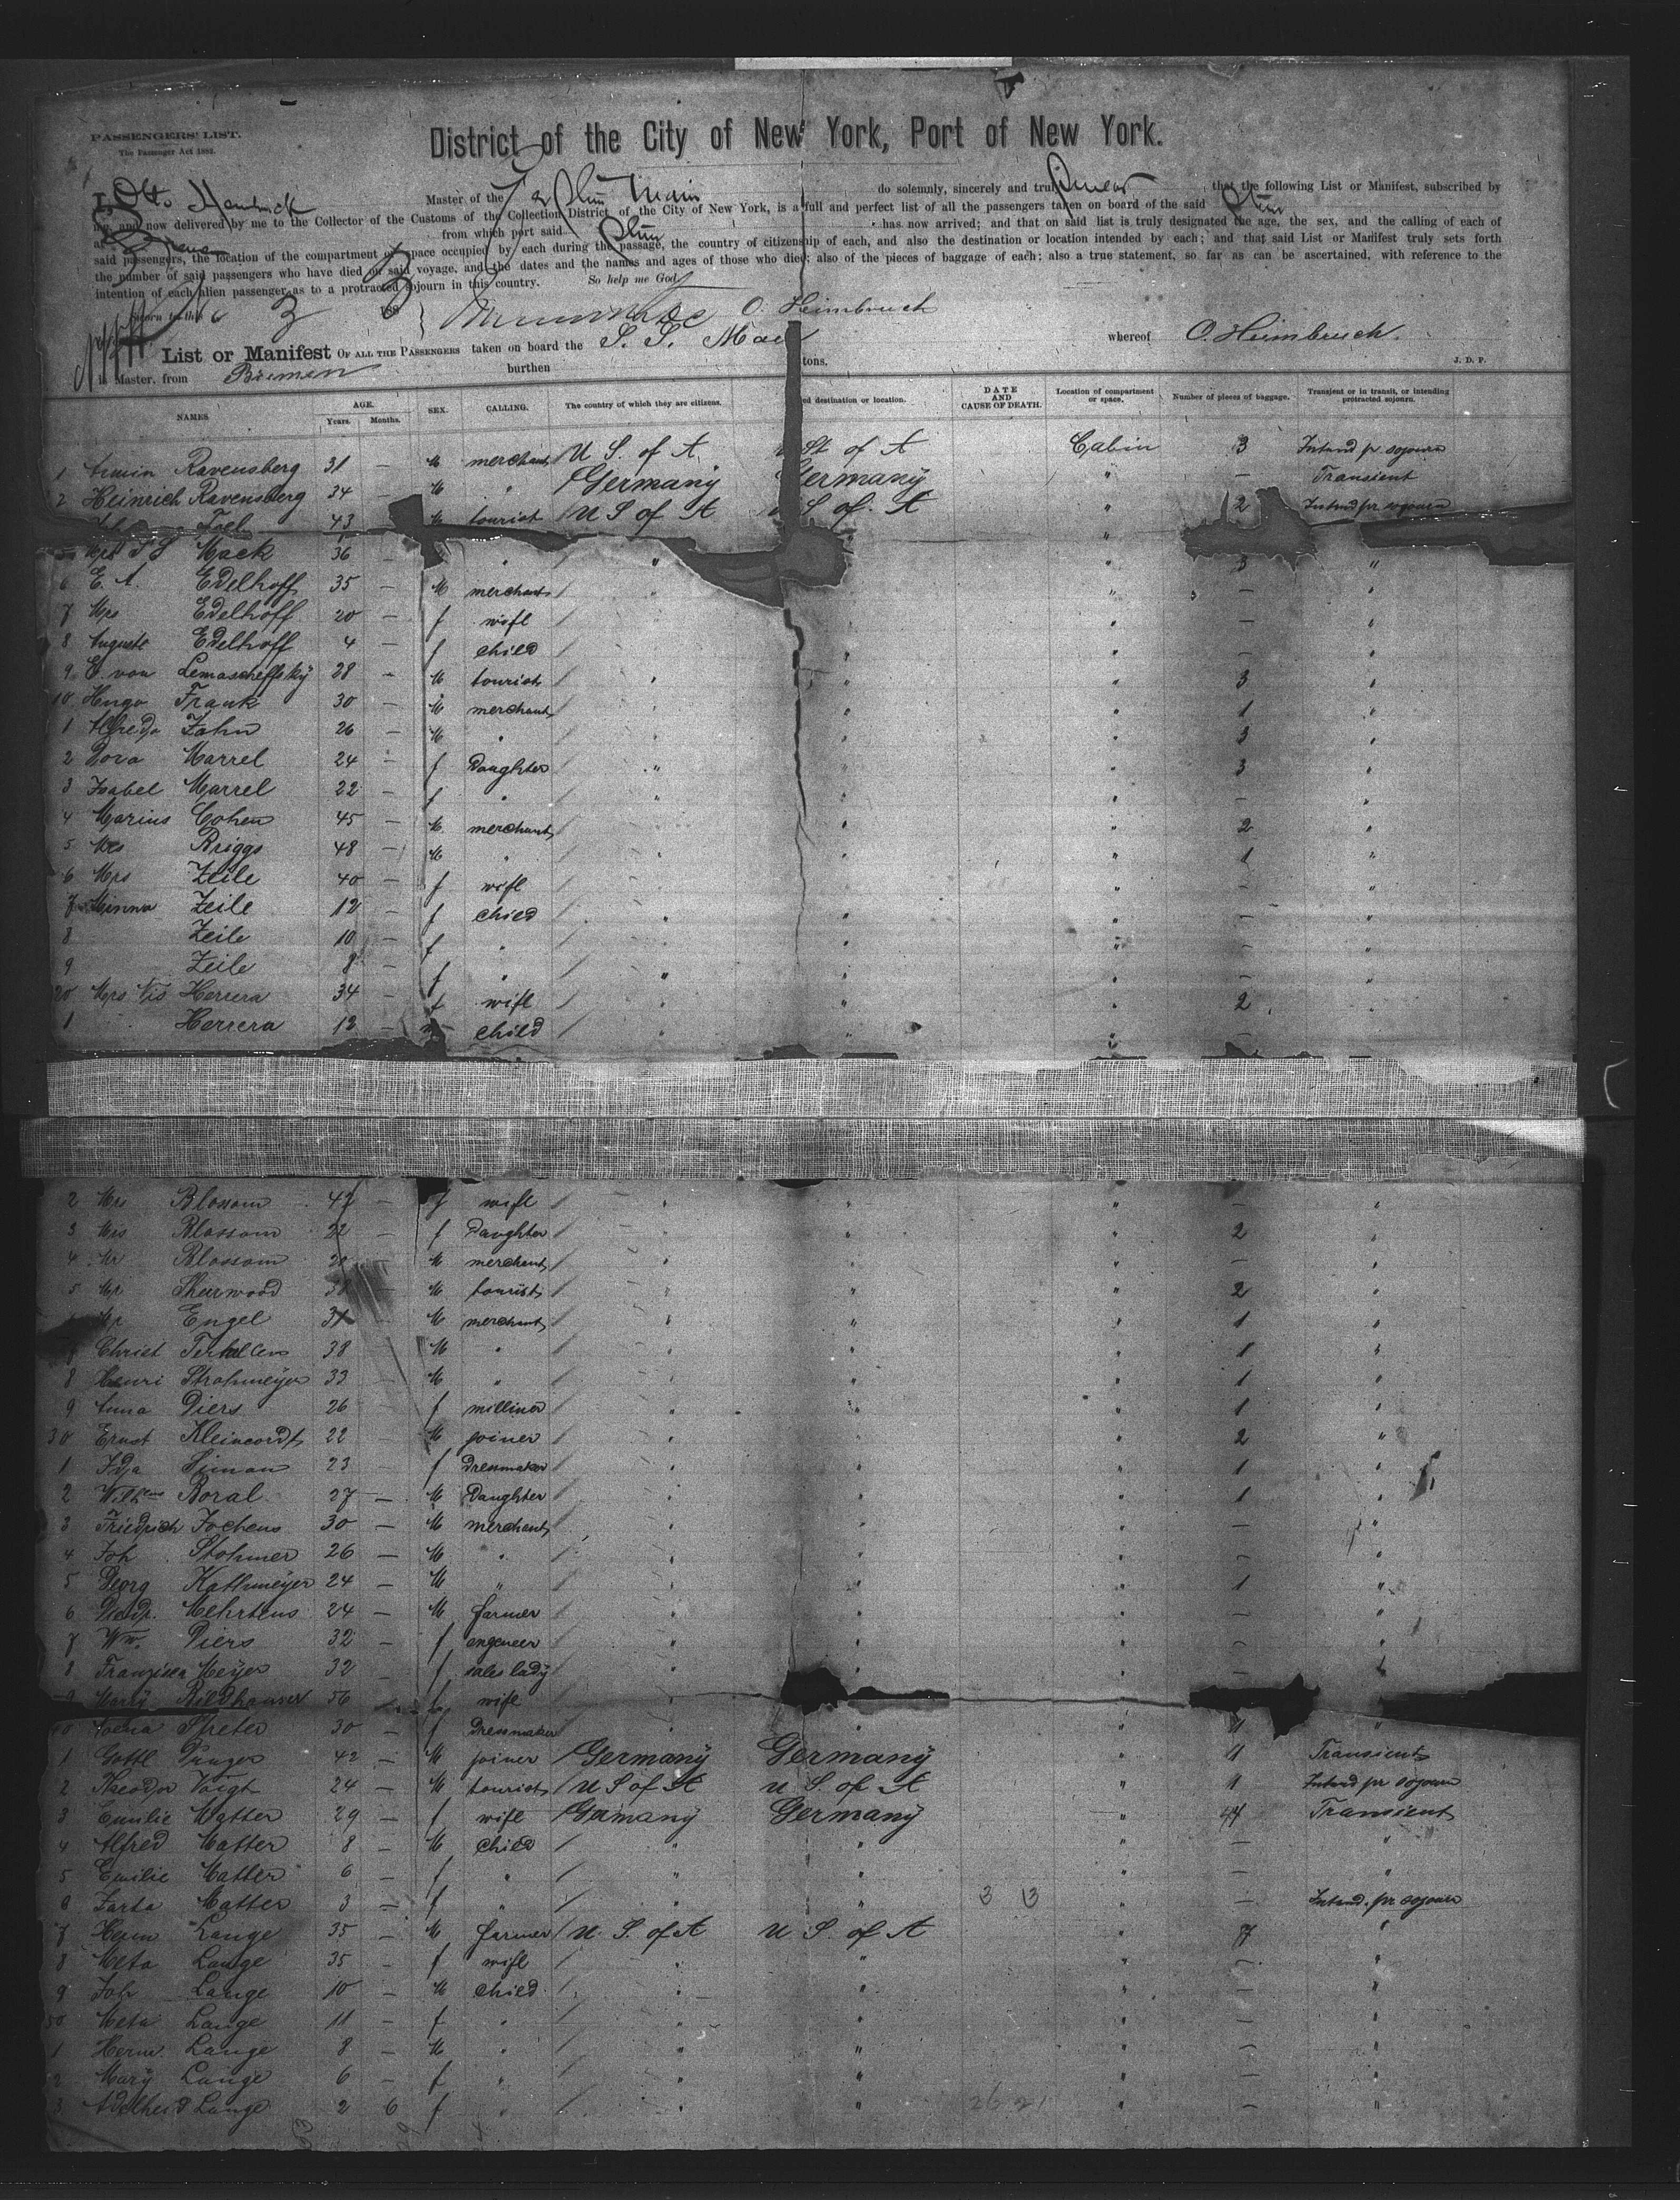 PASSENGERS' LIST.
The Passenger Act 1882.
District of the City of New York, Port of New York.
I, Otto Master of the Main do solemnly, sincerely and truly swear that the following List or Manifest, subscribed by
me, and now delivered by me to the Collector of the Customs of the Collection District of the City of New York, is a full and perfect list of all the passengers taken on board of the said
at Bremen from which port said has now arrived; and that on said list is truly designated the age, the sex, and the calling of each of
said passengers, the location of the compartment or space occupied by each during the passage, the country of citizenship of each, and also the destination or location intended by each; and that said List or Manifest truly sets forth
the number of said passengers who have died on said voyage, and the dates and the names and ages of those who died; also of the pieces of baggage of each; also a true statement, so far as can be ascertained, with reference to the
intention of each alien passenger as to a protracted sojourn in this country. So help me God
Sworn to this 188 O. Heimbruch
List or Manifest OF ALL THE PASSENGERS taken on board the S. S. Main whereof O. Heimbruch.
is Master, from Bremen burthen tons. J. D. P.
NAMES AGE. Years. Months. SEX. CALLING. The country of which they are citizens. ed destination or location. DATE AND CAUSE OF DEATH. Location of compartment or space. Number of pieces of baggage. Transient or in transit, or intending protracted sojourn.
1 Armin Ravensberg 31 — M merchant U S. of A St of A Cabin 3 Intend pr sojourn
2 Heinrich Ravensberg 34 — M " Germany Germany " — Transient
43 — M tourist U S of A S of A " 2 Intend pr sojourn
Mrs Mack 36 — " " " " 3 "
6 E. A. Edelhoff 35 — M merchant " " " — "
7 Mrs Edelhoff 20 — f wife " " — "
8 Auguste Edelhoff 4 — f child " " — "
9 E. von 28 — M tourist " " " 3 "
10 Hugo Frank 30 — M merchant " " 1 "
1 Alfredo Zahn 26 — M " " " 3 "
2 Dora Marrel 24 — f Daughter " " " 3 "
3 Isabel Marrel 22 — f " " " " — "
4 Marius Cohen 45 — M merchant " " 2 "
5 Briggs 48 — M " " " " 1 "
6 Mrs Zeile 40 — f wife " " — "
7 Minna Zeile 12 — f child " " — "
8 Zeile 10 — f " " " — "
9 Zeile 8 — f " " " " — "
20 Mrs Herrera 34 — f wife " " 2 "
1 Herrera 12 — child " " — "
2 Mrs Blossom 47 — f wife " " " — "
3 Blossom 22 — f Daughter " " 2 "
4 Mr Blossom — M merchant " " — "
5 Mr Sherwood M tourist " " " 2 "
Mr Engel 31 M merchant " " " 1 "
Christ 38 M " " " 1 "
8 Henri Strohmeyer 33 — M " " " 1 "
9 Anna Piers 26 f milliner " " " 1 "
30 Ernst Kleincordt 22 M joiner " " " 2 "
1 Ida Simon 23 f Dressmaker " " " 1 "
2 Boral 27 — M Daughter " " " 1 "
3 Friedrich Jochens 30 — M merchant " " " — "
4 Joh Stohmer 26 — M " " " " — "
5 Georg Kathmeyer 24 — M " " " " 1 "
6 Died. Mehrtens 24 — M farmer " " " — "
7 Wm. Piers 32 — f engeneer " " " — "
8 Franziska Meyer 32 f sales lady " " " — "
9 Mary Bildhauser 56 f wife " "
40 Streter 30 — f Dressmaker " " " 1 "
1 Gottl Punger 42 — M joiner Germany Germany " 1 Transient
2 Theodor Voigt 24 — M tourist U S of A U S. of A " 1 Intend pr sojourn
3 Emilie Matter 29 — f wife Germany Germany " 4 Transient
4 Alfred Matter 8 — M child " " " — "
5 Emilie Matter 6 — f " " " " — "
6 Matter 3 — f " " " 3 13 " — Intend. pr sojourn
7 Herm Lange 35 — M farmer U. S. of A U S. of A " 7 "
8 Meta Lange 35 — f wife " " " — "
9 Joh Lange 10 — M child " " " — "
50 Meta Lange 11 — f " " " " — "
1 Herm. Lange 8 — M " " " " — "
2 Mary Lange 6 — f " " " " — "
3 Adelheid Lange 2 6 f " " " 26 21 " — "